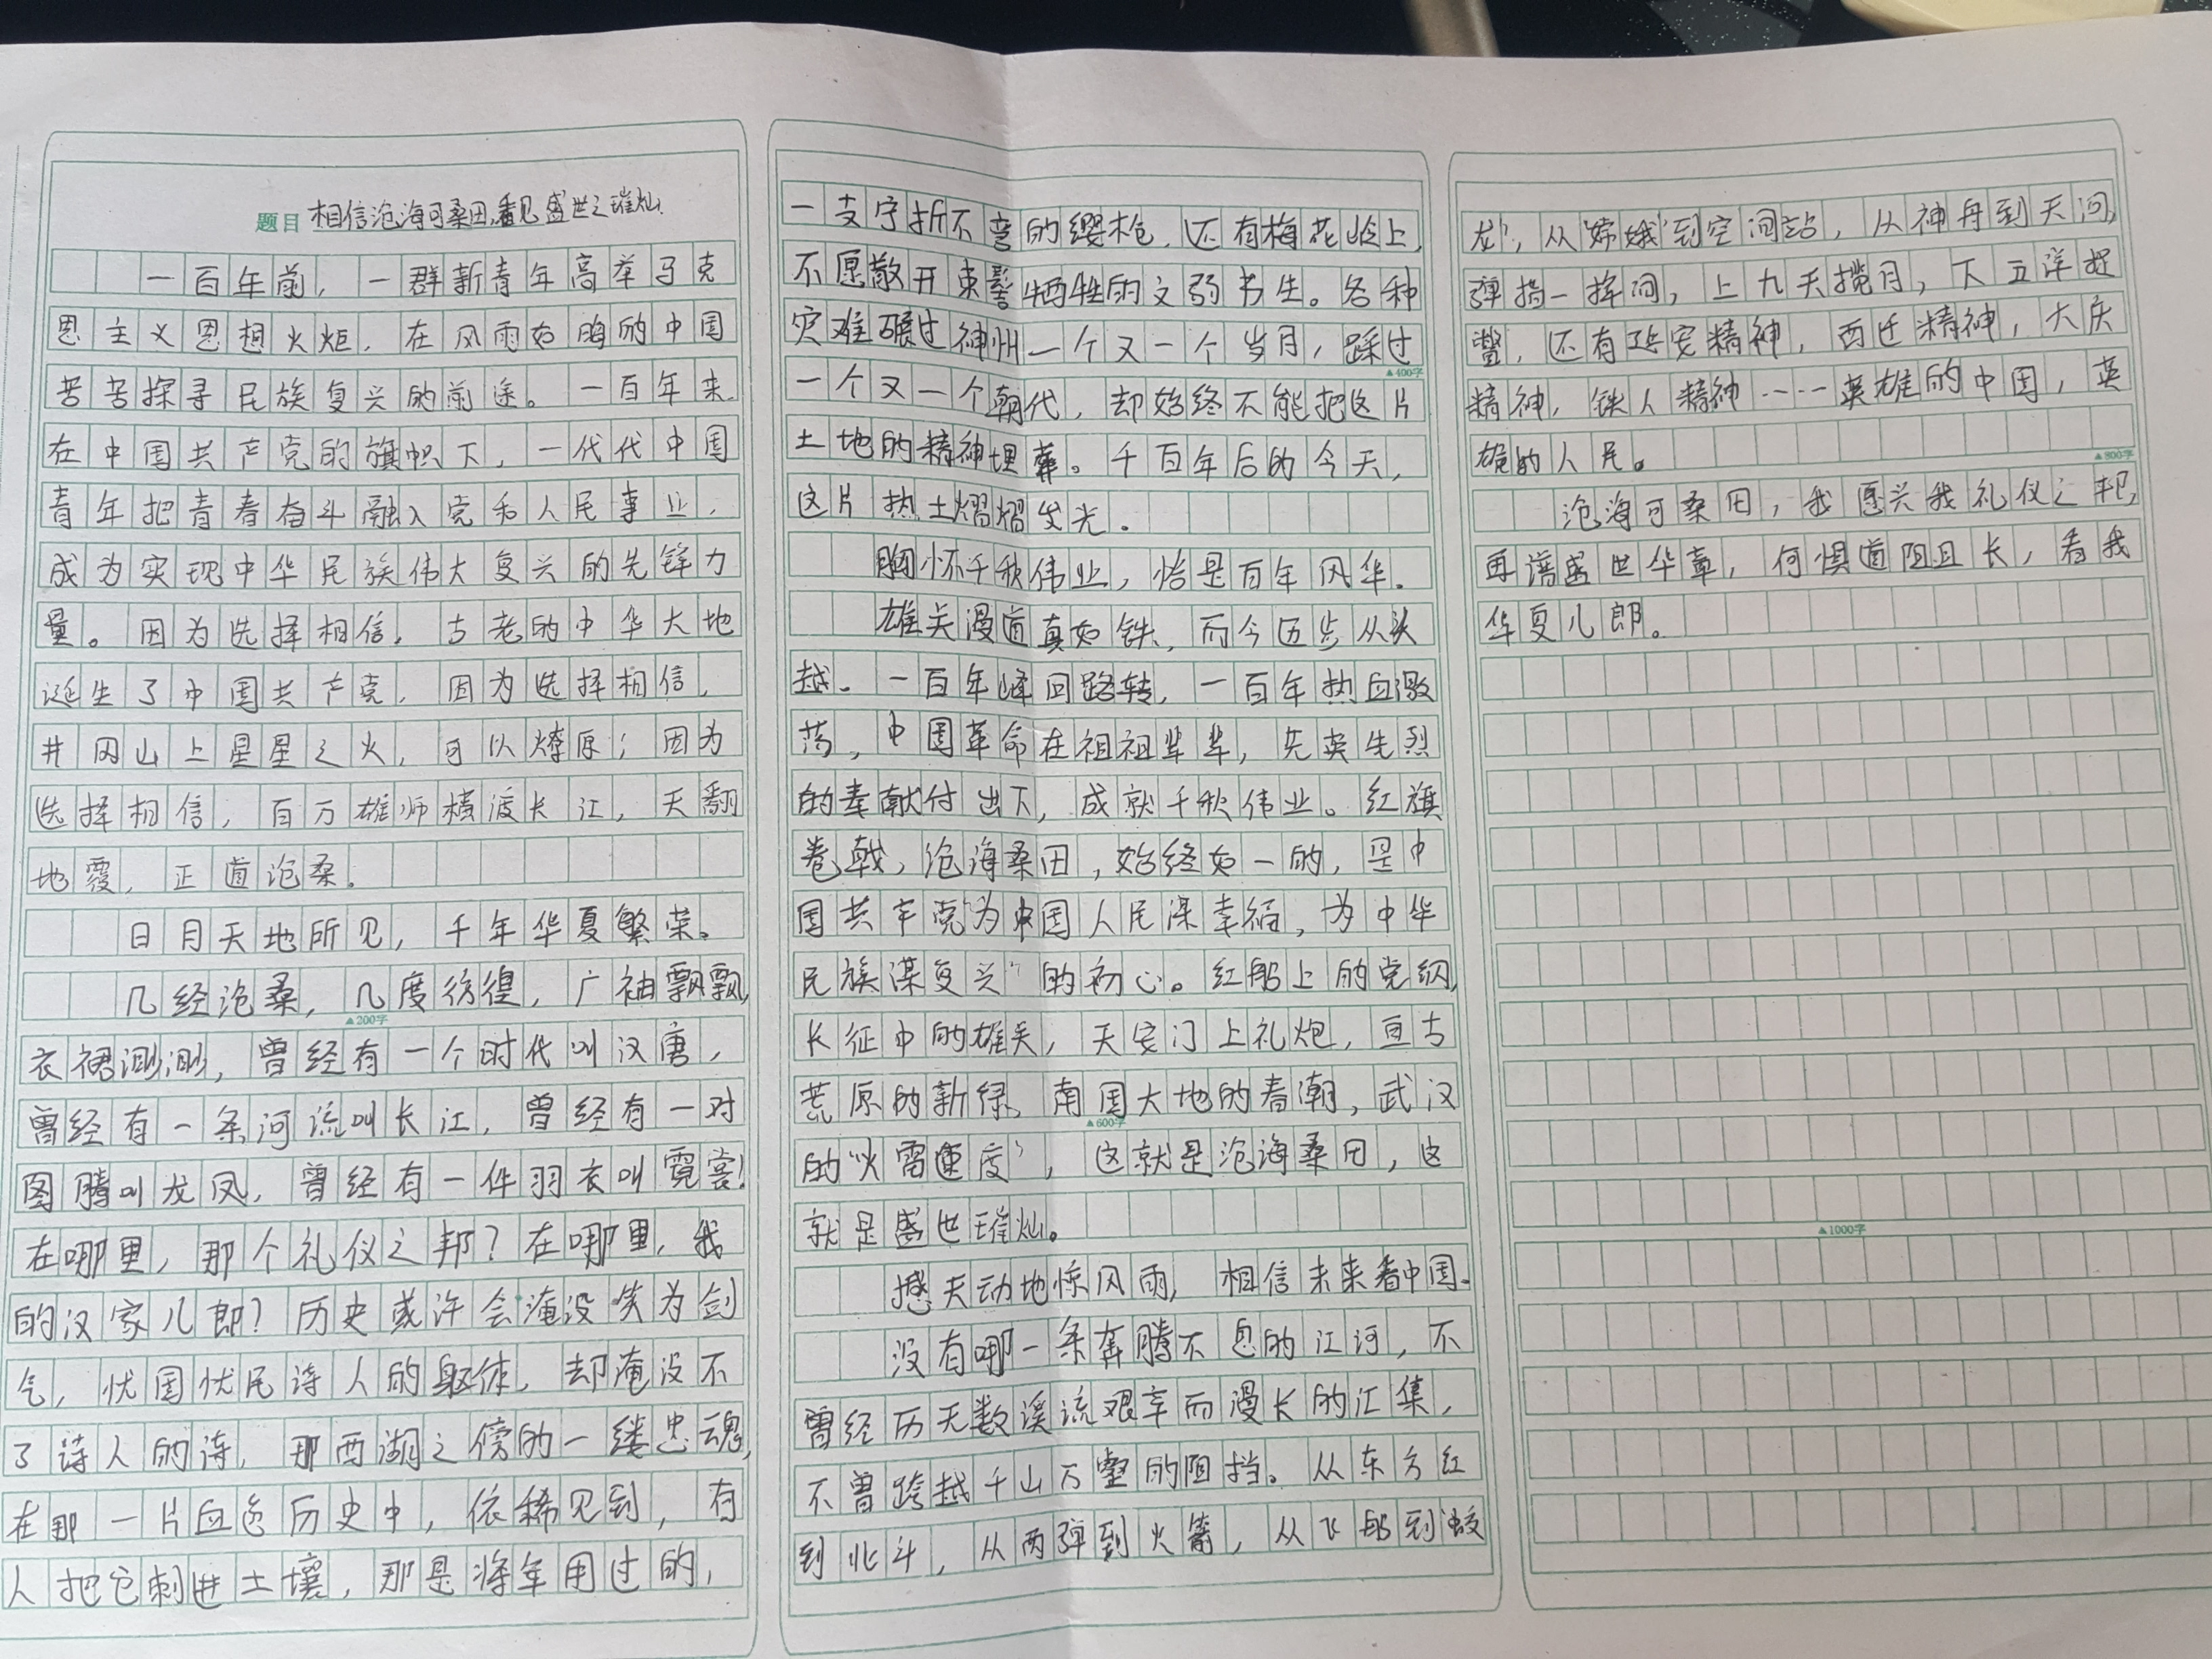 题目 相信沧海可桑田,看见盛世之璀灿.
一百年前，一群新青年高举马克
思主义思想火炬，在风雨如晦的中国
苦苦探寻民族复兴的前途。一百年来
在中国共产党的旗帜下，一代代中国
青年把青春奋斗融入党和人民事业，
成为实现中华民族伟大复兴的先锋力
量。因为选择相信，古老的中华大地
诞生了中国共产党，因为选择相信，
井冈山上星星之火，可以燎原；因为
选择相信，百万雄师横渡长江，天翻
地覆，正道沧桑。
日月天地所见，千年华夏繁荣。
几经沧桑，几度彷徨，广袖飘飘，
▲200字
衣裙渺渺，曾经有一个时代叫汉唐，
曾经有一条河流叫长江，曾经有一对
图腾叫龙凤，曾经有一件羽衣叫霓裳！
在哪里，那个礼仪之邦？在哪里，我
的汉家儿郎？历史或许会淹没 为剑
气，忧国忧民诗人的躯体，却淹没不
了诗人的诗，那西湖之傍的一缕忠魂，
在那一片血色历史中，依稀见到，有
人把它刺进土壤，那是将军用过的，
一支宁折不弯的缨枪，还有梅花岭上，
不愿散开束髻牺牲的文弱书生。各种
灾难碾过神州一个又一个岁月，踩过
▲400字
一个又一个朝代，却始终不能把这片
土地的精神埋葬。千百年后的今天，
这片热土熠熠发光。
胸怀千秋伟业，恰是百年风华.
雄关漫道真如铁，而今迈步从头
越。一百年峰回路转，一百年热血激
荡，中国革命在祖祖辈辈，先英先烈
的奉献付出下，成就千秋伟业。红旗
卷戟，沧海桑田，始终如一的，是中
国共产党“为中国人民谋幸福，为中华
民族谋复兴”的初心。红船上的党纲，
长征中的雄关，天安门上礼炮，亘古
荒原的新绿，南国大地的春潮，武汉
▲600字
的“火雷速度”，这就是沧海桑田，这
就是盛世璀灿。
撼天动地惊风雨，相信未来看中国。
没有哪一条奔腾不息的江河，不
曾经历无数溪流艰辛而漫长的汇集，
不曾跨越千山万壑的阻挡。从东方红
到北斗，从两弹到火箭，从飞船到“蛟
龙”，从“嫦娥”到空间站，从神舟到天河，
弹指一挥间，上九天揽月，下五洋捉
鳖，还有延安精神，西迁精神，大庆
精神，铁人精神……英雄的中国，英
雄的人民。
▲800字
沧海可桑田，我愿兴我礼仪之邦，
再谱盛世华章，何惧道阻且长，看我
华夏儿郎。
▲1000字